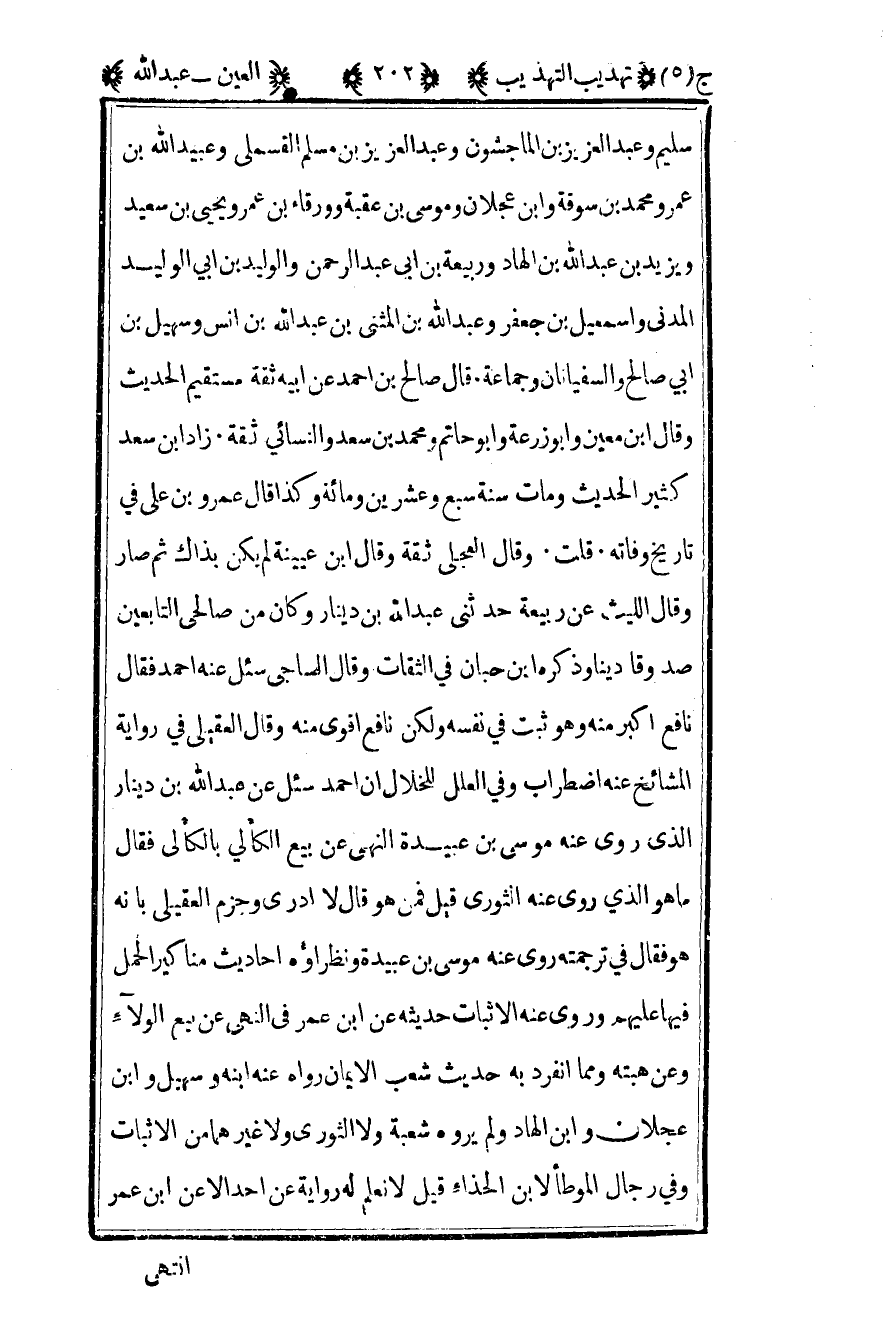 ج (٥) تهذيب التهذيب ٢٠٢ العين - عبدالله
سليم وعبد العزيز بن الماجشون وعبد العزيز بن مسلم القسملى وعبيد الله بن
عمرو محمد بن سوقة وابن عجلان وموسى بن عقبة وورقاء بن عمر ويحيى بن سعيد
ويزيد بن عبدالله بن الهاد وربيعة بن ابى عبد الرحمن والوليد بن ابي الوليد
المدنى واسمعيل بن جعفر وعبدالله بن المثنى بن عبدالله بن انس وسهيل بن
ابي صالح والسفيانان وجماعة ٠ قال صالح بن احمد عن ابيه ثقة مستقيم الحديث
وقال ابن معين وابو زرعة وابو حاتم ومحمد بن سعد والنسائي ثقة ٠ زاد ابن سعد
كثير الحديث ومات سنة سبع وعشرين ومائة وكذا قال عمرو بن على في
تاريخ وفاته ٠ قلت ٠ وقال العجلى ثقة وقال ابن عيينة لم يكن بذاك ثم صار
وقال الليث عن ربيعة حدثنى عبدالله بن دينار وكان من صالحى التابعين
صدوقا دينا وذكره ابن حبان في الثقات وقال الساجى سئل عنه احمد فقال
نافع اكبر منه وهو ثبت في نفسه ولكن نافع اقوى منه وقال العقيلى في رواية
المشائخ عنه اضطراب وفي العلل للخلال ان احمد سئل عن عبدالله بن دينار
الذى روى عنه موسى بن عبيدة النهى عن بيع الكألي بالكألى فقال
ما هو الذي روى عنه الثورى قيل فمن هو قال لا ادرى وجزم العقيلى بانه
هو فقال في ترجمته روى عنه موسى بن عبيدة ونظراؤه احاديث مناكير الحمل
فيها عليهم وروى عنه الاثبات حديثه عن ابن عمر فى النهى عن بيع الولآء
وعن هبته ومما انفرد به حديث شعب الايمان رواه عنه ابنه وسهيل وابن
عجلان وابن الهاد ولم يروه شعبة ولا الثورى ولا غيرهما من الاثبات
وفي رجال الموطأ لابن الحذاء قيل لا نعلم له رواية عن احد الا عن ابن عمر
انتهى